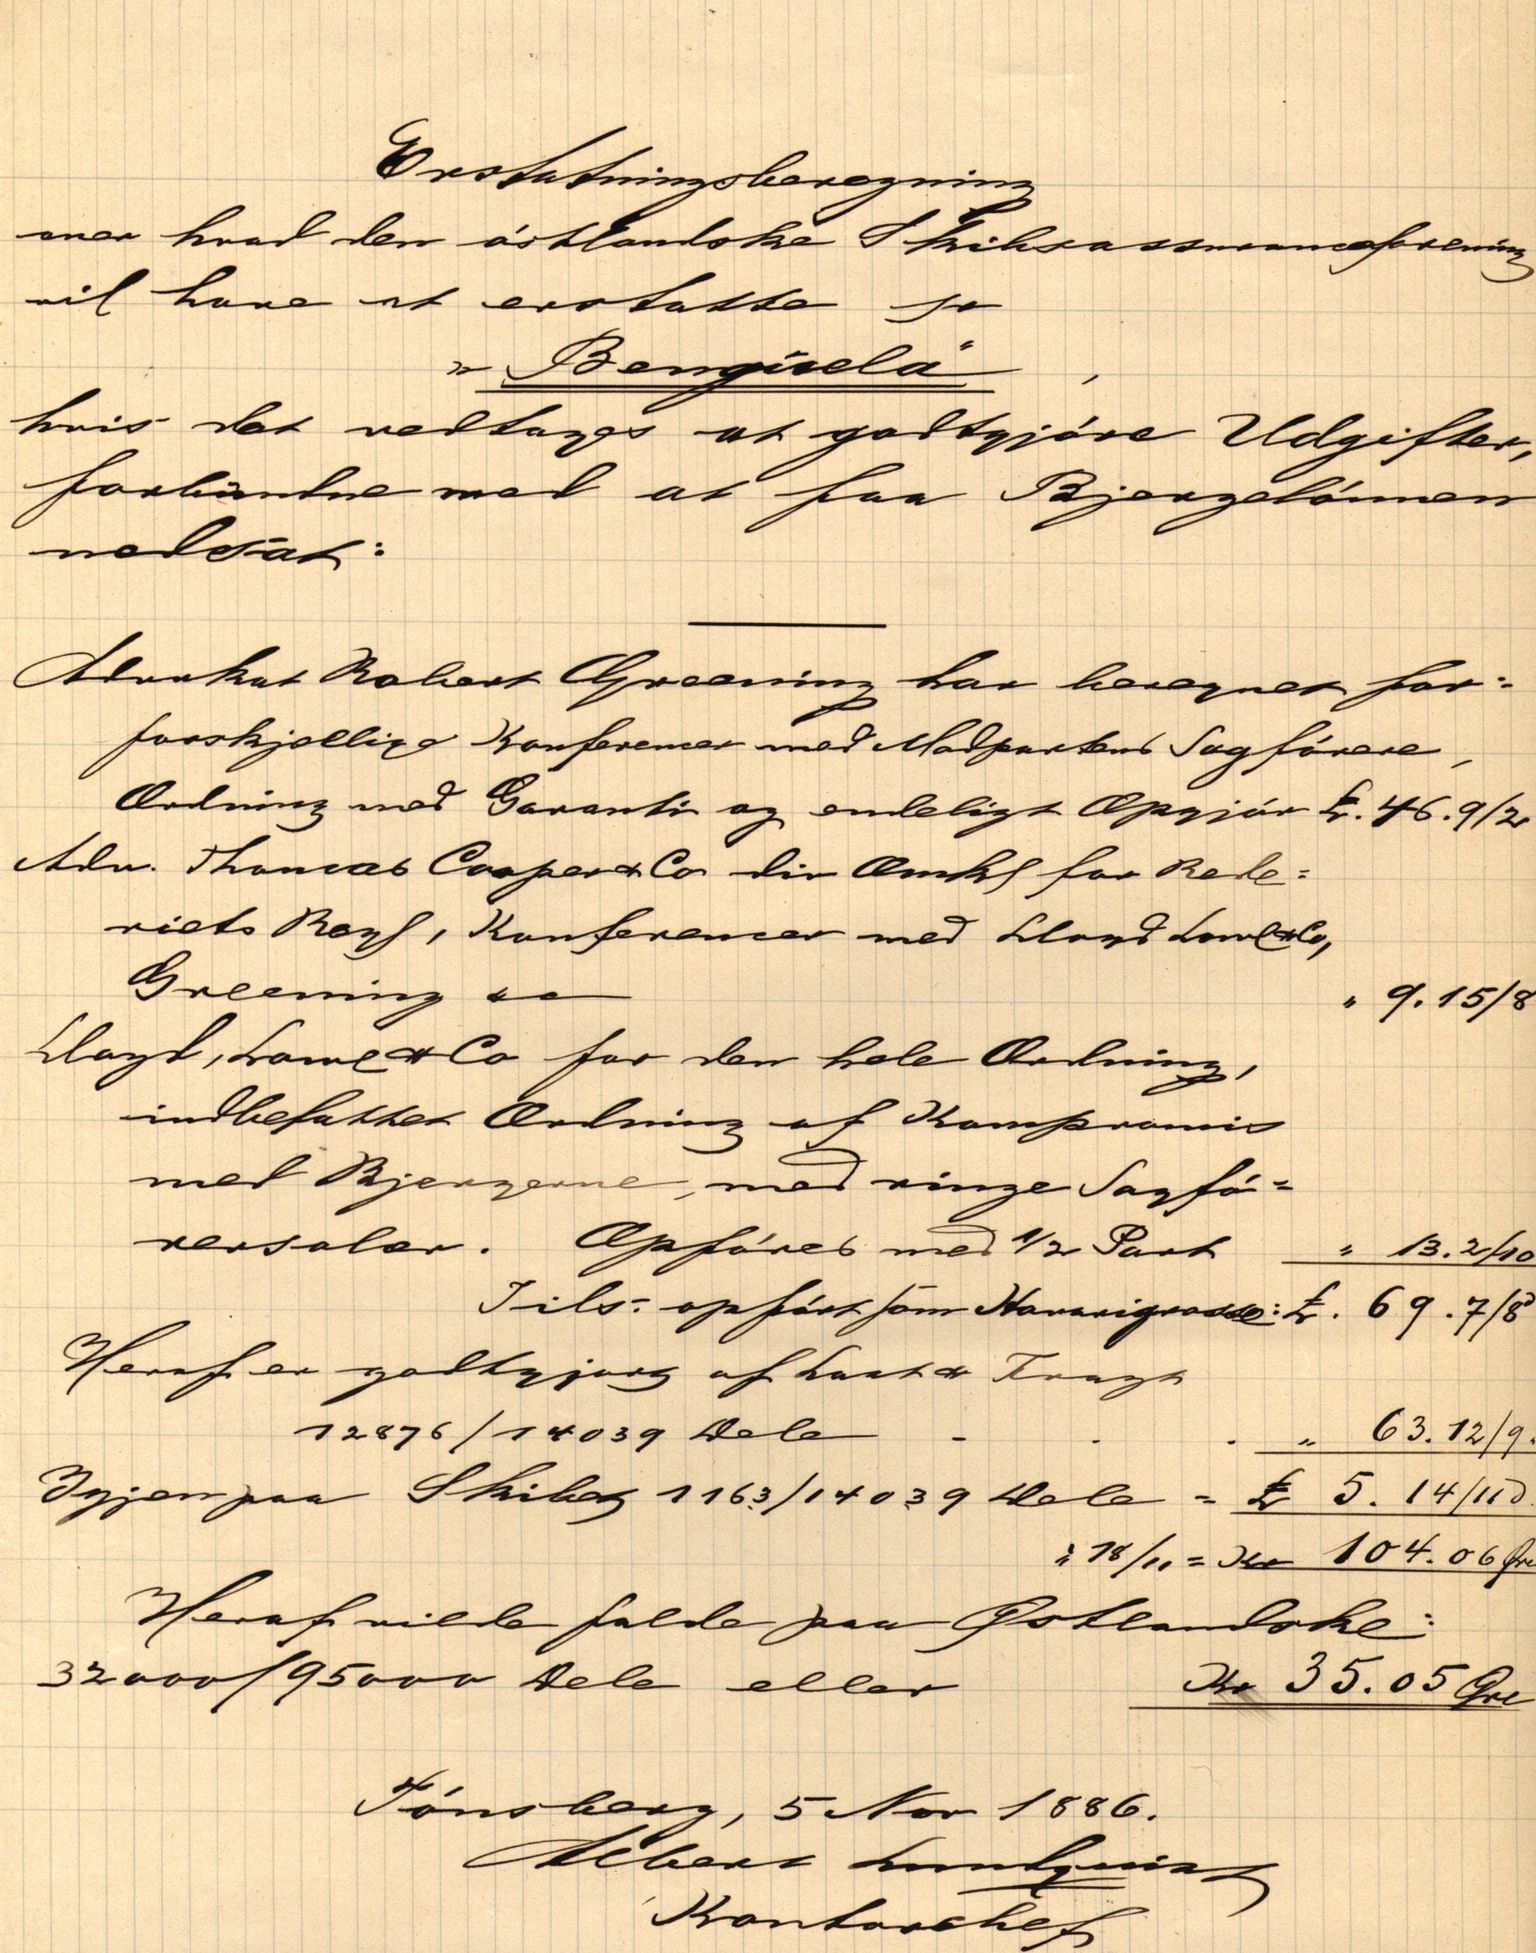 Erstatningsberegning
over hvad den östlandske Skibsassuranceforening
vil have at erstatte pr
"Bengisela",
hvis det vedtages at godtgjöre Udgifter,
forbundne med at faa Bjergelönnen
nedsat:
Advokat Robert Greening har beregnet for:
forskjellige Konferencer med Modpartens Sagförere,
Ordning med Garanti og endeligt Opgjör £. 46.9/2
Adv. Thomas Cooper & Co div Omk for Rede:
riets Regn, Konferencer med Lloyd Lowe & Co,
Greening " 9.15/8
Lloyd, Lowe & Co for den hele Ordning,
indbefattet Ordning af Kompromis
med Bjergerne, med ringe Sagfö=
rersalær. Opföres med 1/2 Part " 13.2/10
Tils: opfört som Havarigrosse: £. 69.7/8d
Heraf er godtgjort af Last & Fragt
12876/14039 Dele - - - " 63.12/9.
Igjen paa Skibet 1163/14039 Dele = £ 5. 14/11d.
à 18/11 = Kr 104.06 Øre
Heraf vilde falde paa Østlandske:
32000/95000 Dele eller Kr 35.05 Øre
Tönsberg, 5 Nov 1886.
Albert Lundquist
Kontorchef